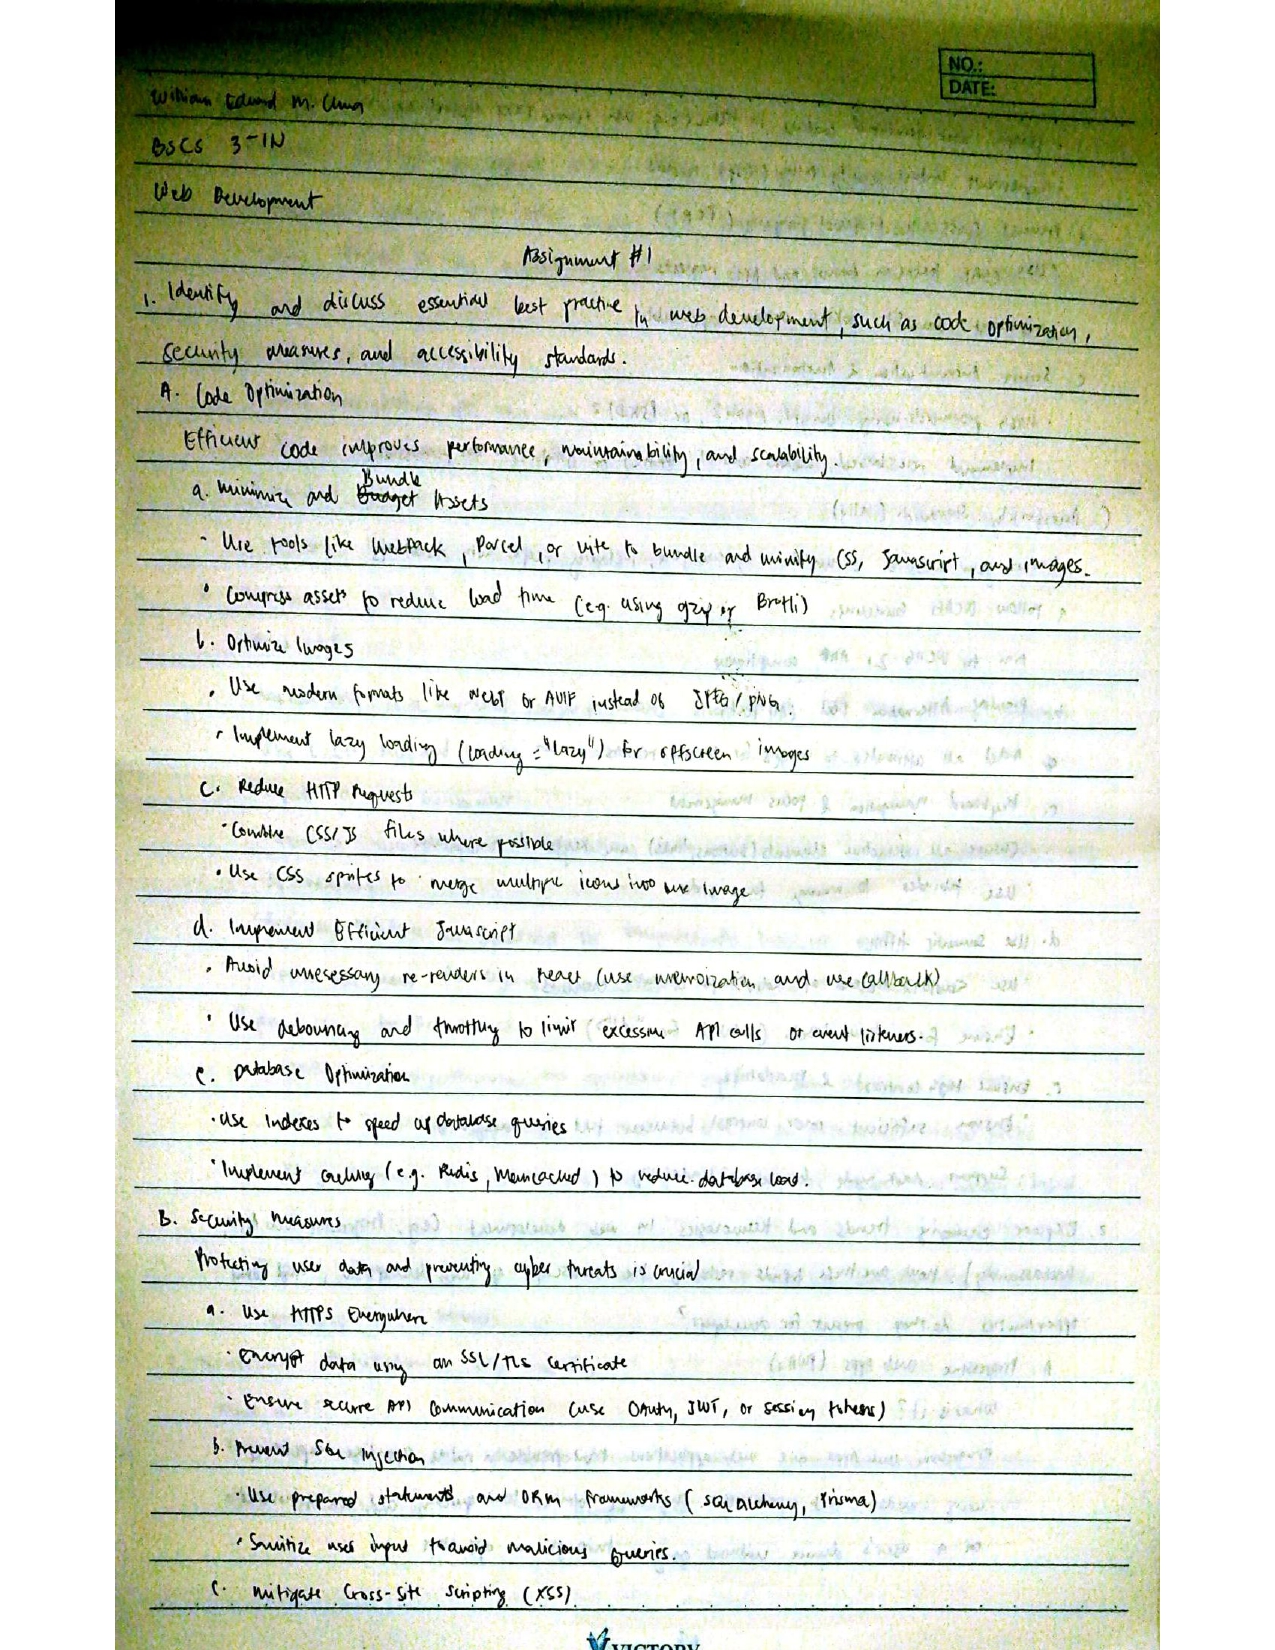 NO.:
DATE:
William Edward M.
BSCS 3-1N
Web Development
Assignment #1
1. Identify and discuss essential best practive in web development, such as code optimization,
security measures, and accessibility standards.
A. Code Optimization
Efficient code improves performance, maintainability, and scalability.
Bundle
a. Minimize and Budget Assets
• Use tools like Webpack, Parcel, or vite to bundle and minify CSS, Javascript, and images.
• Compress assets to reduce load time (e.g. using gzip or Brotli)
b. Optimize Images
• Use modern formats like WebP or AVIF instead of JPEG/PNG.
• Implement lazy loading (loading="lazy") for offscreen images
C. Reduce HTTP Requests
• Combine CSS/JS files where possible
• Use CSS sprites to merge multiple icons into one image
d. Implement Efficient Javascript
• Avoid unnesessary re-renders in React (use memoization and use Callback)
• Use debouncing and throttling to limit excessive API calls or event listeners.
e. Database Optimization
• Use indexes to speed up database queries
• Implement caching (e.g. Redis, Memcached) to reduce database load.
B. Security Measures
Protecting user data and preventing cyber threats is crucial
a. Use HTTPS Everywhere
• Encrypt data using an SSL/TLS certificate
• Ensure secure API communication (use OAuth, JWT, or session tokens)
b. Prevent SQL Injection
• Use prepared statements and ORM frameworks (SQLAlchemy, Prisma)
• Sanitize user input to avoid malicious queries.
C. Mitigate Cross-Site Scripting (XSS)
VICTORY